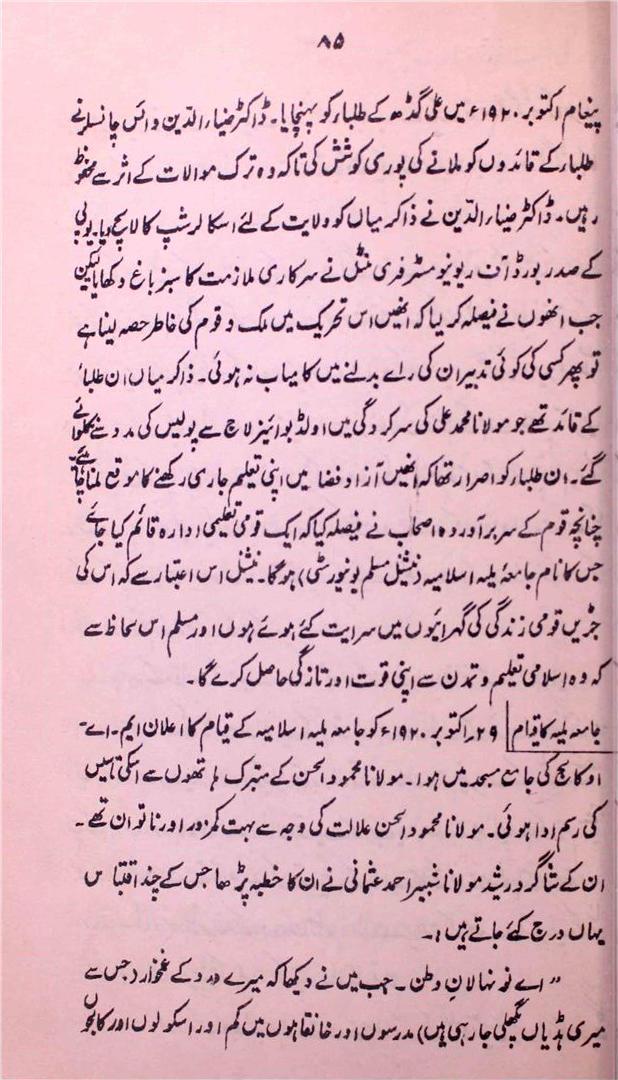 ۸۵
پیغام اکتوبر ۱۹۲۰ء میں علی گڈھ کے طلباء کو پہنچایا۔ ڈاکٹر ضیاء الدین وائس چانسلر نے
طلباء کے قائدوں کو ملانے کی پوری کوشش کی تاکہ وہ ترک موالات کے اثر سے محفوظ
رہیں۔ ڈاکٹر ضیاء الدین نے ذاکر میاں کو ولایت کے لئے اسکالرشپ کا لالچ دیا۔ یوپی
کے صدر بورڈ آف ریونیو مسٹر فری منٹل نے سرکاری ملازمت کا سبز باغ دکھایا لیکن
جب انھوں نے فیصلہ کر لیا کہ انھیں اس تحریک میں ملک و قوم کی خاطر حصہ لینا ہے
تو پھر کسی کی کوئی تدبیر ان کی راے بدلنے میں کامیاب نہ ہوئی۔ ذاکر میاں ان طلباء
کے قائد تھے جو مولانا محمد علی کی سرکردگی میں اولڈ بوائیز لاج سے پولیس کی مدد سے نکلوائے
گئے۔ ان طلباء کو اصرار تھا کہ انھیں آزاد فضا میں اپنی تعلیم جاری رکھنے کا موقع ملنا چاہئے
چنانچہ قوم کے سربرآوردہ اصحاب نے فیصلہ کیا کہ ایک قومی تعلیمی ادارہ قائم کیا جائے
جس کا نام جامعۂ ملیہ اسلامیہ (نیشنل مسلم یونیورسٹی) ہوگا۔ نیشنل اس اعتبار سے کہ اس کی
جڑیں قومی زندگی کی گہرائیوں میں سرایت کئے ہوئے ہوں اور مسلم اس لحاظ سے
کہ وہ اسلامی تعلیم و تمدن سے اپنی قوت اور تازگی حاصل کرے گا۔
جامعہ ملیہ کا قیام ۲۹؍ اکتوبر ۱۹۲۰ء کو جامعہ ملیہ اسلامیہ کے قیام کا اعلان ایم۔ اے۔
او کالج کی جامع مسجد میں ہوا۔ مولانا محمود الحسن کے متبرک ہاتھوں سے اسکی تاسیس
کی رسم ادا ہوئی۔ مولانا محمود الحسن علالت کی وجہ سے بہت کمزور اور ناتواں تھے۔
ان کے شاگرد رشید مولانا شبیر احمد عثمانی نے ان کا خطبہ پڑھا جس کے چند اقتباس
یہاں درج کئے جاتے ہیں :۔
" اے نونہالان وطن۔ جب میں نے دیکھا کہ میرے درد کے غمخوار (جس سے
میری ہڈیاں پگھلی جا رہی ہیں) مدرسوں اور خانقاہوں میں کم اور اسکولوں اور کالجوں